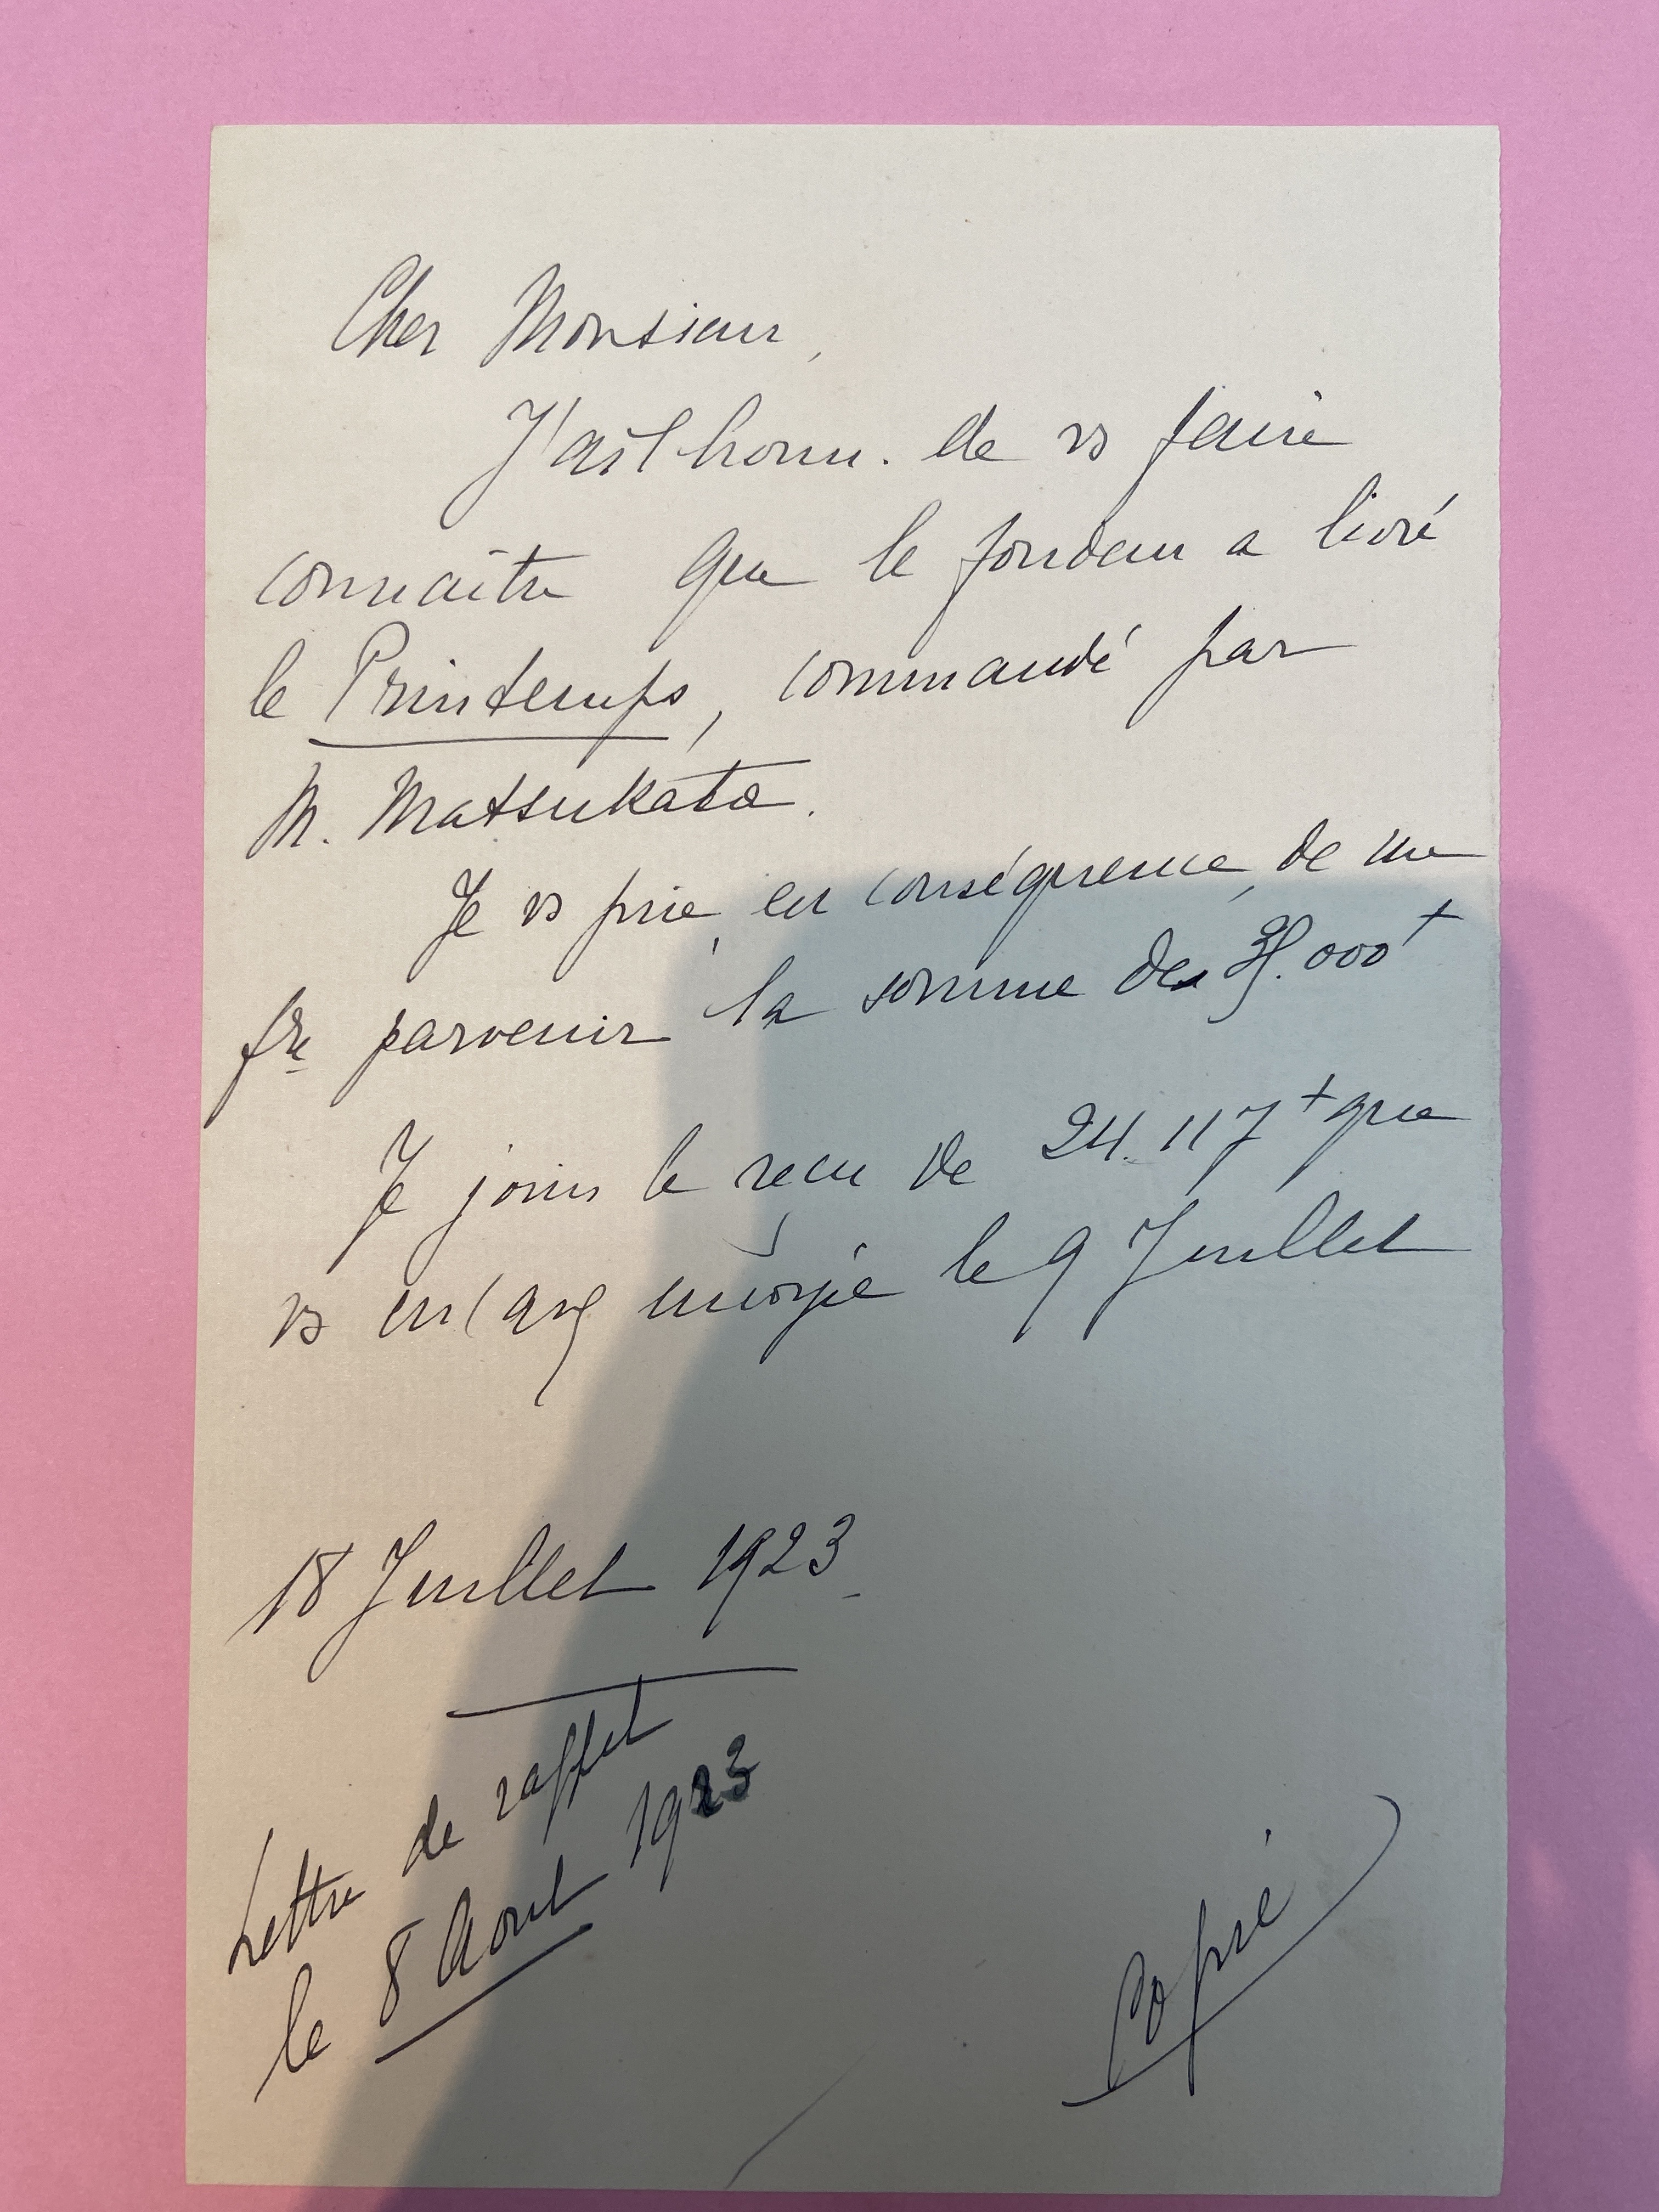 Cher Monsieur,
J'ai l'honn. de vs faire
connaître que le fondeur a livré
le Printemps, commandé par
M. Matsukata.
Je vs prie, en conséquence, de me
fre parvenir la somme de .000f
Je joins le reçu de 24.117f que
vs m' avez envoyé le 9 Juillet
18 Juillet 1923
Lettre de rappel
le 8 Aout 1923
Copie